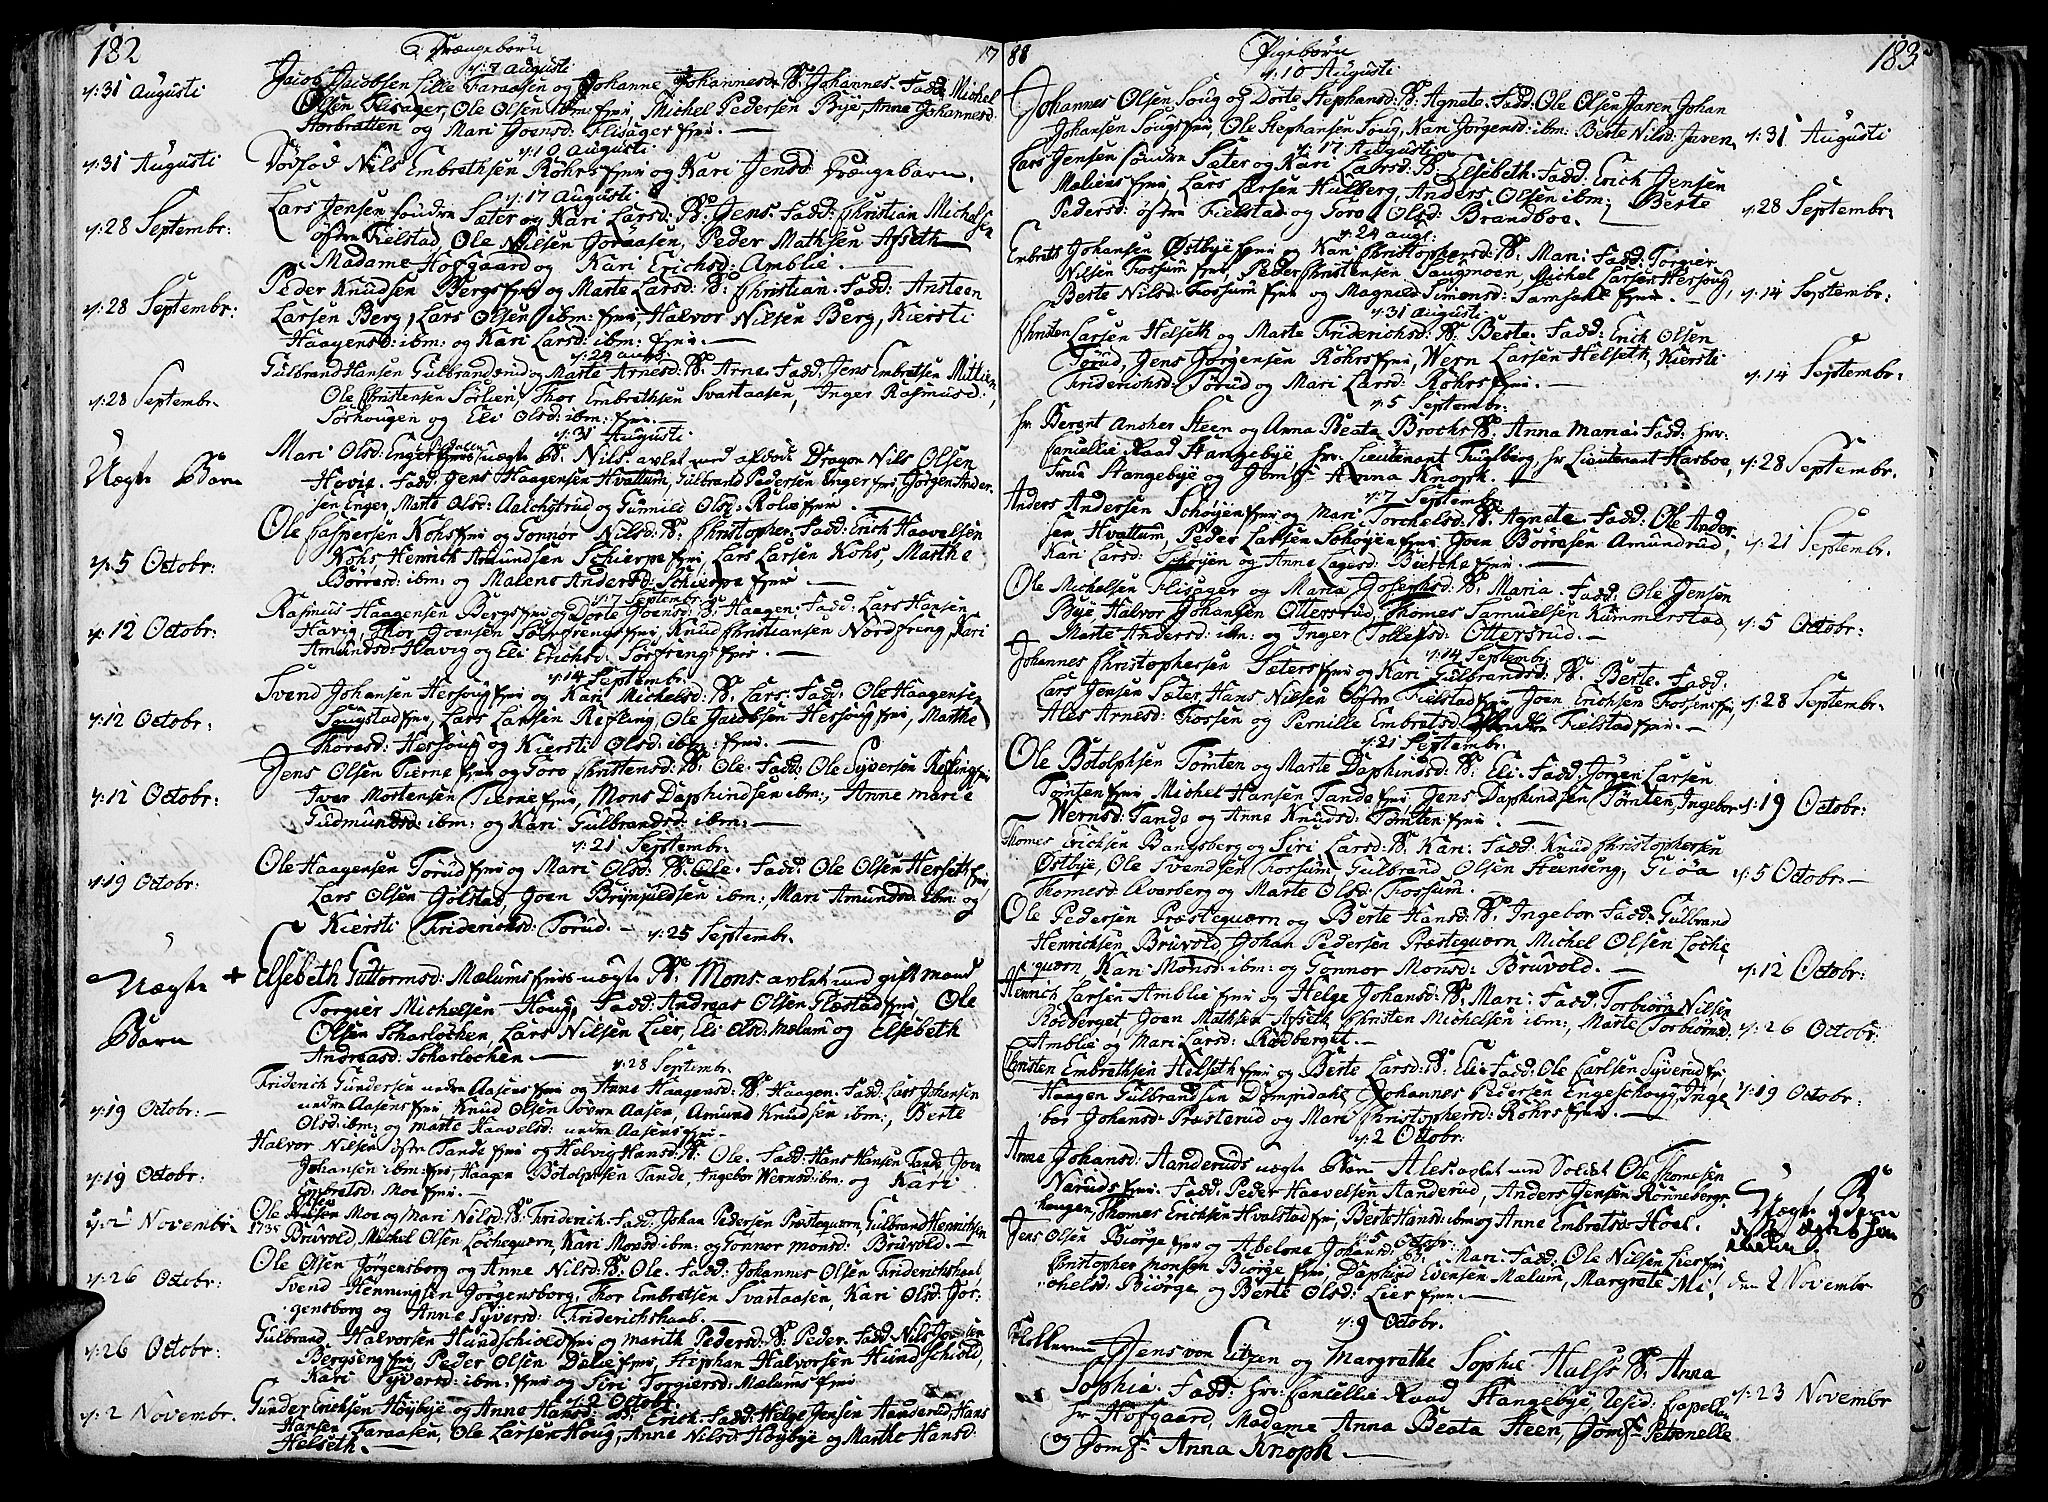 182
Drængebørn
17
d: 7 Augusti
d: 31 Augusti
Jacob Jacobsen Lille Faraasen og Johanne Johannesd: B: Johannes. Fadd: Michel
Olsen Flisager, Ole Olsen ibm: fjrn, Michel Pedersen Bye, Anne Johannesd:
Storbratten og Mari Joensd: Flisager fjrn. —
d: 10 Augusti
d: 31 Augusti
Dödföd Nils Embrethsen Röhrs fjrn og Kari Jensd: Drængebarn.
d: 17 Augusti
d: 28 Septembr:
Lars Jensen söndre Sæter og Kari Larsd: B: Jens. Fadd: Christian Michelsen
östre Fielstad, Ole Nilsen Joraasen, Peder Mathsen Afseth
Madame Hofgaard og Kari Erichsd: Amblie. —
d: 28 Septembr:
Peder Knudsen Bergs fjrn og Marte Larsd: B: Christian. Fadd: Ansteen
Larsen Berg, Lars Olsen ibm: fjrn, Halvor Nilsen Berg, Kiersti
Haagensd: ibm: og Kari Larsd: ibm: fjrn. —
d: 24 aug:
d: 28 Septembr.
Gulbrand Hansen Gulbrandsrud og Marte Arnesd: B: Arne. Fadd: Jens Embretsen
Ole Christensen Sörlien, Thor Embrethsen Svartaasen, Inger Rasmusd:
Sörhougen og Eli Olsd: ibm: fjrn. —
d: 31 Augusti
Uægte Barn
Mari Olsd: Enger uægte B: Nils avlet med afdöde Dragon Nils Olsen
Hovie. Fadd: Jens Haagensen Hvattum, Gulbrand Pedersen Enger fjrn, Jörgen Ander-
sen Enger, Marte Olsd: Aalchystrud og Gunnild Olsd: Rolie fjrn. —
d: 5 Octobr:
Ole Caspersen Kohs fjrn og Gonnor Nilsd: B: Christopher. Fadd: Erich Haavelsen
Kohs, Henrich Amundsen Schierpe fjrn, Lars Larsen Kohs, Marthe
Borresd: ibm: og Malene Andersd: Schierpe fjrn —
d: 7 Septembr:
d: 12 Octobr:
Rasmus Haagensen Bergs fjrn og Dorte Joensd: B: Haagen. Fadd: Lars Hansen
Havig, Thor Joensen Sörfrengs fjrn, Knud Christiansen Nordfreng, Kari
Amundsd: Havig og Eli Erichsd: Sörfrengs fjrn. —
d: 14 Septembr.
d: 12 Octobr:
Svend Johansen Hersoug fjrn og Kari Michelsd: B: Lars. Fadd: Ole Haagensen
Sougstad fjrn, Lars Larsen Refling, Ole Jacobsen Hersoug fjrn, Marthe
Thoresd: Hersoug og Kiersti Olsd: ibm: fjrn. —
d: 12 Octobr:
Jens Olsen Tierne fjrn og Goro Christensd: B: Ole. Fadd: Ole Syversen Refling fjrn
Iver Mortensen Tierne fjrn, Mons Daphindsen ibm:, Anne Marie
Gudmundsd: ibm: og Kari Gulbrandsd: ibm: —
d: 21 Septembr.
d: 19 Octobr:
Ole Haagensen Torud fjrn og Mari Olsd: B: Ole. Fadd: Ole Olsen Herseth fjrn
Lars Olsen Golstad, Joen Brynjuldsen ibm:, Mari Amundsd: ibm: og
Kiersti Friderichsd: Torud. —
d: 25 Septembr.
Uægte +
Barn
Elsebeth Guttormsd: Mælums fjrns uægte B: Mons avlet med gift mand
Torgier Michelsen Houg, Fadd: Andreas Olsen Glæstad fjrn, Ole
Olsen Scharlochen, Lars Nilsen Lier, Eli Olsd: Mælum og Elsebeth
Andreasd: Scharlochen. —
d: 28 Septembr.
d: 19 Octobr: —
Friderich Gundersen nedre Aasens fjrn og Anne Haagensd: B: Haagen. Fadd: Lars Johansen
nedre Aasens fjrn, Knud Olsen övre Aasen, Amund Knudsen ibm:, Berte
Olsd: ibm: og Marte Haavelsd: nedre Aasens fjrn. —
d: 19 Octobr:
Halvor Nilsen östre Tande fjrn og Helvig Hansd: B: Ole. Fadd: Hans Hansen Tande, Joen
Johansen ibm: fjrn, Haagen Botolphsen Tande, Ingebor Wernsd: ibm: og Kari
Embretsd: Moe fjrn. —
d: 2 Novembr:
Ole Moe og Mari Nilsd: B: Friderich. Fadd: Johan Pedersen Præstequærn, Gulbrand Henrichsen
Bruvold, Michel Olsen Lochequærn, Kari Monsd: ibm: og Gonnor Monsd: Bruvold. —
d: 26 Octobr:
Ole Olsen Jörgensborg og Anne Nilsd: B: Ole. Fadd: Johannes Olsen Friderichshaab,
Svend Henningsen Jörgensborg, Thor Embretsen Svartaasen, Kari Olsd: Jör-
gensborg og Anne Syversd: Friderichshaab. —
d: 26 Octobr:
Gulbrand Halvorsen Hundschiold fjrn og Marith Pedersd: B: Peder. Fadd: Nils
Bergseng fjrn, Peder Olsen Delie fjrn, Stephan Halvorsen Hundschiold,
Kari Syversd: ibm: fjrn og Siri Torgiersd: Mælums fjrn
d: 2 Octobr.
d: 2 Novembr.
Gunder Erichsen Höybye og Anne Hansd: B: Erich. Fadd: Helge Jensen Aanderud, Hans
Hansen Faraasen, Ole Larsen Houg, Anne Nilsd: Höybye og Marthe Hansd:
Helseth. —
88
Pigebørn
183
d: 10 Augusti
Johannes Olsen Soug og Dorte Stephansd: B: Agnete. Fadd: Ole Olsen Jaren, Johan
Johansen Sougs fjrn, Ole Stephansen Soug, Kari Jörgensd: ibm: Berte Nilsd: Jaren
d: 31 Augusti
d: 17 Augusti
Lars Jensen söndre Sæter og Kari Larsd: B: Elsebeth. Fadd: Erich Jensen
Mæliens fjrn, Lars Larsen Hulberg, Anders Olsen ibm: Berte
Pedersd: östre Fielstad og Goro Olsd: Brandboe. —
d: 28 Septembr:
d: 24 aug:
Embreth Johansen Östbye fjrn og Kari Christophersd: B: Mari. Fadd: Torgier
Nilsen Fossum fjrn, Peder Christensen Saugmoen, Michel Larsen Hersoug,
Berte Nilsd: Fossum fjrn og Magnild Simensd: Samsahl fjrn. —
d: 14 Septembr:
d: 31 Augusti
Christen Larsen Helseth og Marte Friderichsd: B: Berte. Fadd: Erich Olsen
Torud, Jens Jörgensen Röhrs fjrn, Wern Larsen Helseth, Kiersti
Friderichsd: Torud og Mari Larsd: Röhrs fjrn. —
d: 14 Septembr.
d: 5 Septembr:
Hr. Berent Ancher Steen og Anna Beata Brochs B: Anna Maria. Fadd: Hr.
Cancellie Raad Stangebye, Hr. Lieutenant Fuglberg, Hr. Lieutenant Harboe,
Frue Stangebye og Jomfr: Anna Knoph. —
d: 28 Septembr.
d: 7 Septembr.
Anders Andersen Schöyen fjrn og Mari Torchelsd: B: Agnete. Fadd: Ole Ander-
sen Hvattum, Peder Larsen Schöyen fjrn, Joen Borresen Amundrud,
Kari Larsd: Schöyen og Anne Lagesd: Bierche fjrn. —
d: 21 Septembr.
Ole Michelsen Flisager og Maria Josephsd: B: Maria. Fadd: Ole Jensen
Bye, Halvor Johansen Ottersrud, Thomes Samuelsen Kummerstad,
Marte Andersd: ibm: og Inger Tollefsd: Ottersrud. —
d: 5 Octobr:
d: 14 Septembr.
Johannes Christophersen Sæters fjrn og Kari Gulbrandsd: B: Berte. Fadd:
Lars Jensen Sæter, Hans Nilsen östre Fielstad fjrn, Joen Erichsen Fossen fjrn,
Ales Arnesd: Fossen og Pernille Embretsd: Fielstad fjrn. —
d: 28 Septembr.
d: 21 Septembr.
Ole Botolphsen Tömten og Marte Daphindsd: B: Eli. Fadd: Jörgen Larsen
Tömten fjrn, Michel Hansen Tande fjrn, Jens Daphindsen Tömten, Ingebor
Wernsd: Tande og Anne Knudsd: Tömten fjrn. —
d: 19 Octobr:
Thomes Erichsen Bangsberg og Siri Larsd: B: Kari. Fadd: Knud Christophersen
Östbye, Ole Svendsen Fossum, Gulbrand Olsen Steenseng, Giöa
Thomesd: Averberg og Marte Olsd: Fossum.
d: 5 Octobr: —
Ole Pedersen Præstequærn og Berte Hansd: B: Ingebor. Fadd: Gulbrand
Henrichsen Bruvold, Johan Pedersen Præstequærn, Michel Olsen Loche-
quærn, Kari Monsd: ibm: og Gonnor Monsd: Bruvold. —
d: 12 Octobr:
Henrich Larsen Amblie fjrn og Helge Johansd: B: Mari. Fadd: Torbiörn Nilsen
Rödberget, Joen Mathsen Afseth, Christen Michelsen ibm:, Marte Torbiörnsd:
Amblie og Mari Larsd: Rödberget. —
d: 26 Octobr:
Christen Embrethsen Helseth fjrn og Berte Larsd: B: Eli. Fadd: Ole Carlsen Syverud fjrn,
Haagen Gulbrandsen Dompidahl, Johannes Pedersen Engeschoug, Inge-
bor Johansd: Præsterud og Mari Christophersd: Röhrs fjrn. —
d: 19 Octobr:
d: 2 Octobr:
Anne Johansd: Aanderuds uægte Barn Ales avlet med Soldat Ole Thomesen
Naruds fjrn. Fadd: Peder Haavelsen Aanderud, Anders Jensen Rönneberg-
hougen, Thomes Erichsen Hvalstad fjrn, Berte Hansd: ibm og Anne Embretsd: Hoel.
Uægte Barn
d: 5 Octobr:
Jens Olsen Biörge fjrn og Abelone Johansd: B: Mari. Fadd: Ole Nilsen Lier fjrn
Christopher Monsen Biörge fjrn, Daphind Evensen Mælum, Margrete Mi-
chelsd: Biörge og Berte Olsd: Lier fjrn. —
den 2 Novembr
d: 9 Octobr.
Jens von Citzen og Margrethe Sophie Halss B: Anna
Sophie. Fadd: Hr. Cancellie Raad Stangebye, Resid: Capellan
Hr Hofgaard, Madame Anna Beata Steen, Jomfr: Petronelle
og Jomfr: Anna Knoph. —
d: 23 Novembr